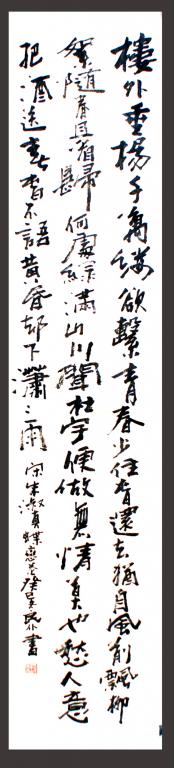 樓外垂楊千萬縷欲繫青春少住春還去猶自風前飄柳
絮隨春且看歸何處綠滿山川聞杜宇便做無情莫也愁人意
把酒送春春不語黃昏却下瀟々雨 宋朱淑貞蝶戀花 書